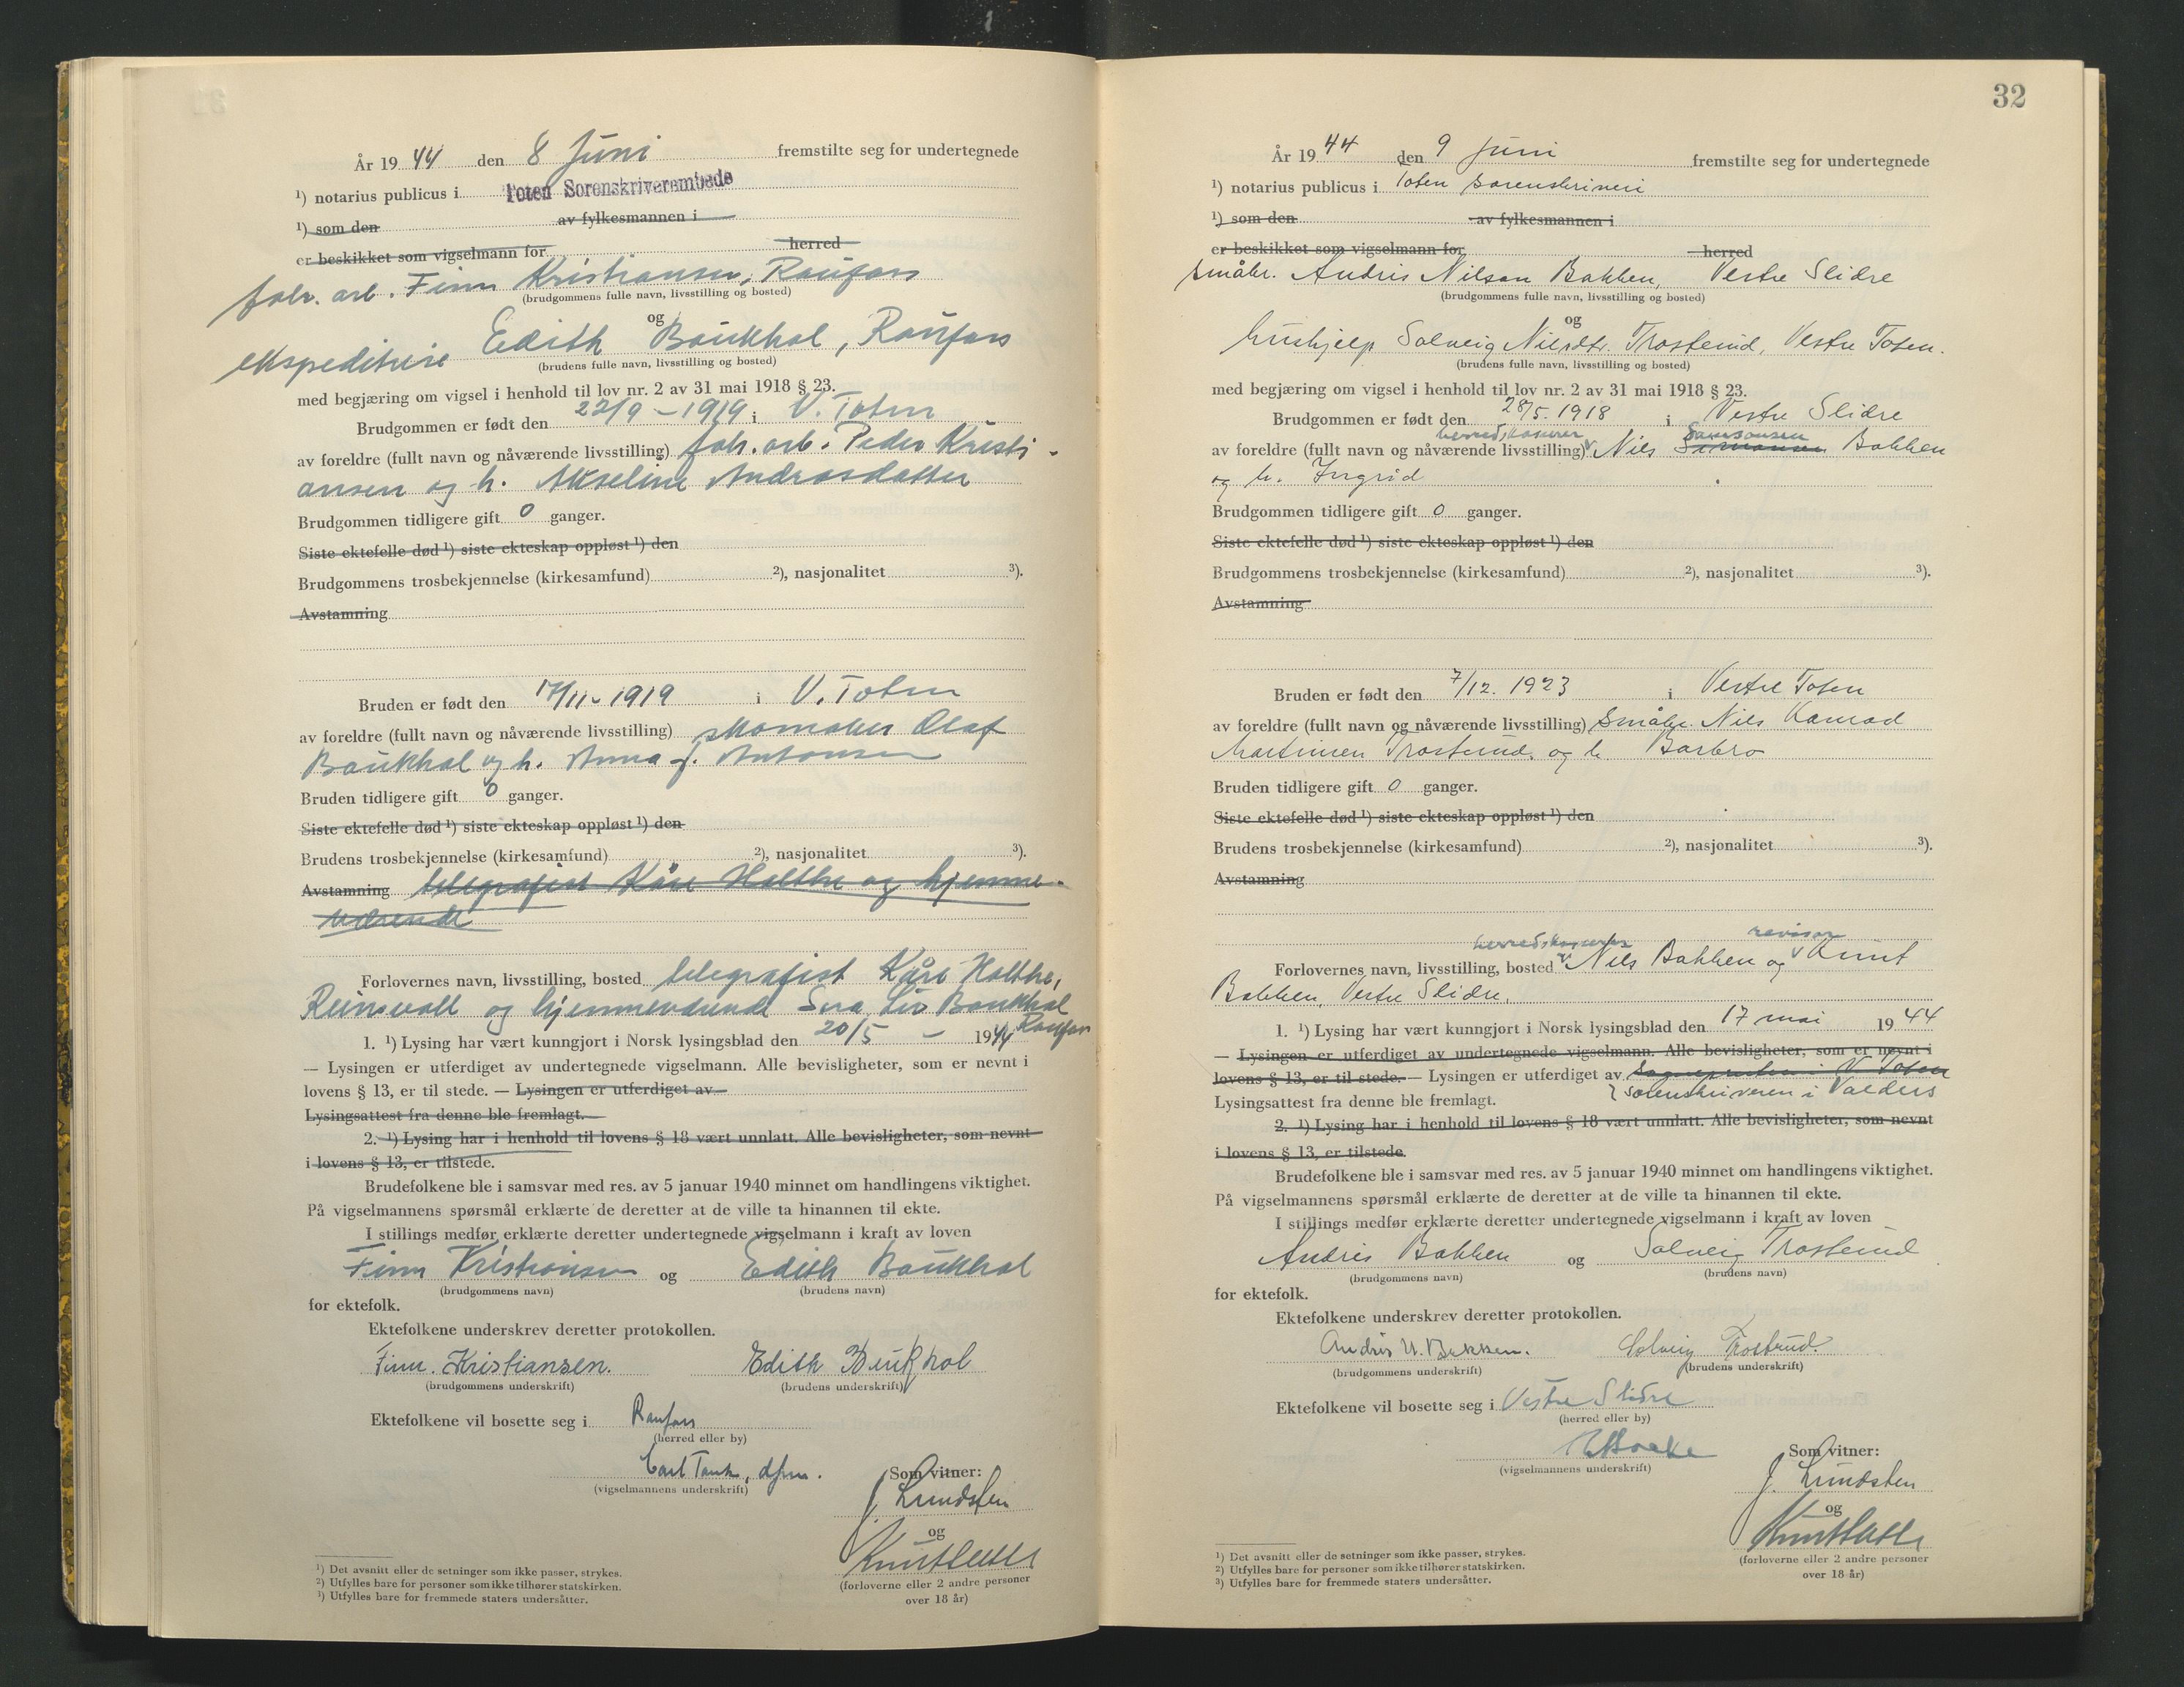 År 1944 den 8 Juni fremstilte seg for undertegnede
¹) notarius publicus i Toten Sorenskriverembede
¹) som den av fylkesmannen i
er beskikket som vigselmann for herred
fabr. arb. Finn Kristiansen, Raufoss
(brudgommens fulle navn, livsstilling og bosted)
og
ekspeditrise Edith Baukhol, Raufoss
(brudens fulle navn, livsstilling og bosted)
med begjæring om vigsel i henhold til lov nr. 2 av 31 mai 1918 § 23.
Brudgommen er født den 22/9 - 1919 i V. Toten
av foreldre (fullt navn og nåværende livsstilling) fabr. arb. Peder Kristi-
ansen og h. Akseline Andreasdatter
Brudgommen tidligere gift 0 ganger.
Siste ektefelle død ¹) siste ekteskap oppløst ¹) den
Brudgommens trosbekjennelse (kirkesamfund) ²), nasjonalitet ³).
Avstamning
Bruden er født den 17/11 - 1919 i V. Toten
av foreldre (fullt navn og nåværende livsstilling) skomaker Olaf
Baukhol og h. Anna f. Antonsen
Bruden tidligere gift 0 ganger.
Siste ektefelle død ¹) siste ekteskap oppløst ¹) den
Brudens trosbekjennelse (kirkesamfund) ²), nasjonalitet ³).
Avstamning telegrafist Kåre Holthe og hjemme-
værende
Forlovernes navn, livsstilling, bosted telegrafist Kåre Holthe,
Reinsvoll og hjemmeværende Liv Baukhol
Raufoss
1. ¹) Lysing har vært kunngjort i Norsk lysingsblad den 20/5 - 1944
— Lysingen er utferdiget av undertegnede vigselmann. Alle bevisligheter, som er nevnt i
lovens § 13, er til stede. — Lysingen er utferdiget av
Lysingsattest fra denne ble fremlagt.
2. ¹) Lysing har i henhold til lovens § 18 vært unnlatt. Alle bevisligheter, som nevnt
i lovens § 13, er tilstede.
Brudefolkene ble i samsvar med res. av 5 januar 1940 minnet om handlingens viktighet.
På vigselmannens spørsmål erklærte de deretter at de ville ta hinannen til ekte.
I stillings medfør erklærte deretter undertegnede vigselmann i kraft av loven
Finn Kristiansen og Edith Baukhol
(brudgommens navn) (brudens navn)
for ektefolk.
Ektefolkene underskrev deretter protokollen.
Finn. Kristiansen. Edith Baukhol
(brudgommens underskrift) (brudens underskrift)
Ektefolkene vil bosette seg i Raufoss
(herred eller by)
Carl Tank, dfm.
(vigselmannens underskrift)
Som vitner:
J. Lundsten
og
(forloverne eller 2 andre personer
over 18 år)
¹) Det avsnitt eller de setninger som ikke passer, strykes.
²) Utfylles bare for personer som ikke tilhører statskirken.
³) Utfylles bare for fremmede staters undersåtter.
32
År 1944 den 9 juni fremstilte seg for undertegnede
¹) notarius publicus i Toten sorenskriveri
¹) som den av fylkesmannen i
er beskikket som vigselmann for herred
småbr. Andris Nilson Bakken, Vestre Slidre
(brudgommens fulle navn, livsstilling og bosted)
og
hushjelp Solveig Nilsdtr. Trosterud, Vestre Toten.
(brudens fulle navn, livsstilling og bosted)
med begjæring om vigsel i henhold til lov nr. 2 av 31 mai 1918 § 23.
Brudgommen er født den 28/5. 1918 i Vestre Slidre
herredskaserer
av foreldre (fullt navn og nåværende livsstilling) Nils Bakken
og h. Ingrid
Brudgommen tidligere gift 0 ganger.
Siste ektefelle død ¹) siste ekteskap oppløst ¹) den
Brudgommens trosbekjennelse (kirkesamfund) ²), nasjonalitet ³).
Avstamning
Bruden er født den 7/12. 1923 i Vestre Toten
av foreldre (fullt navn og nåværende livsstilling) småbr. Nils Konrad
Martinsen Trosterud. og h. Barbro
Bruden tidligere gift 0 ganger.
Siste ektefelle død ¹) siste ekteskap oppløst ¹) den
Brudens trosbekjennelse (kirkesamfund) ²), nasjonalitet ³).
Avstamning
herredskaserer revisor
Forlovernes navn, livsstilling, bosted Nils Bakken og Knut
Bakken, Vestre Slidre.
1. ¹) Lysing har vært kunngjort i Norsk lysingsblad den 17 mai 1944
— Lysingen er utferdiget av undertegnede vigselmann. Alle bevisligheter, som er nevnt i
lovens § 13, er til stede. — Lysingen er utferdiget av Sogneprsten i V Toten
Lysingsattest fra denne ble fremlagt. sorenskriveren i Valdres
2. ¹) Lysing har i henhold til lovens § 18 vært unnlatt. Alle bevisligheter, som nevnt
i lovens § 13, er tilstede.
Brudefolkene ble i samsvar med res. av 5 januar 1940 minnet om handlingens viktighet.
På vigselmannens spørsmål erklærte de deretter at de ville ta hinannen til ekte.
I stillings medfør erklærte deretter undertegnede vigselmann i kraft av loven
Andris Bakken og Solveig Trosterud
(brudgommens navn) (brudens navn)
for ektefolk.
Ektefolkene underskrev deretter protokollen.
Andris N. Bakken. Solveig Trostrud.
(brudgommens underskrift) (brudens underskrift)
Ektefolkene vil bosette seg i Vestre Slidre
(herred eller by)
(vigselmannens underskrift)
Som vitner:
J. Lundsten
og
(forloverne eller 2 andre personer
over 18 år)
¹) Det avsnitt eller de setninger som ikke passer, strykes.
²) Utfylles bare for personer som ikke tilhører statskirken.
³) Utfylles bare for fremmede staters undersåtter.